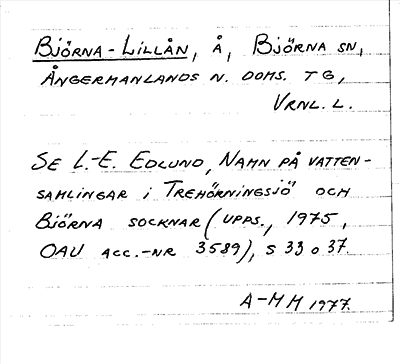 BJÖRNA-LILLÅN, Å, BJÖRNA SN,
ÅNGERMANLANDS N. DOMS. TG,
VRNL. L.
SE L.-E. EDLUND, NAMN PÅ VATTEN-
SAMLINGAR I TREHÖRNINGSJÖ OCH
BJÖRNA SOCKNAR (UPPS., 1975,
OAU ACC.-NR 3589), S 33 o 37.
A-M M 1977.